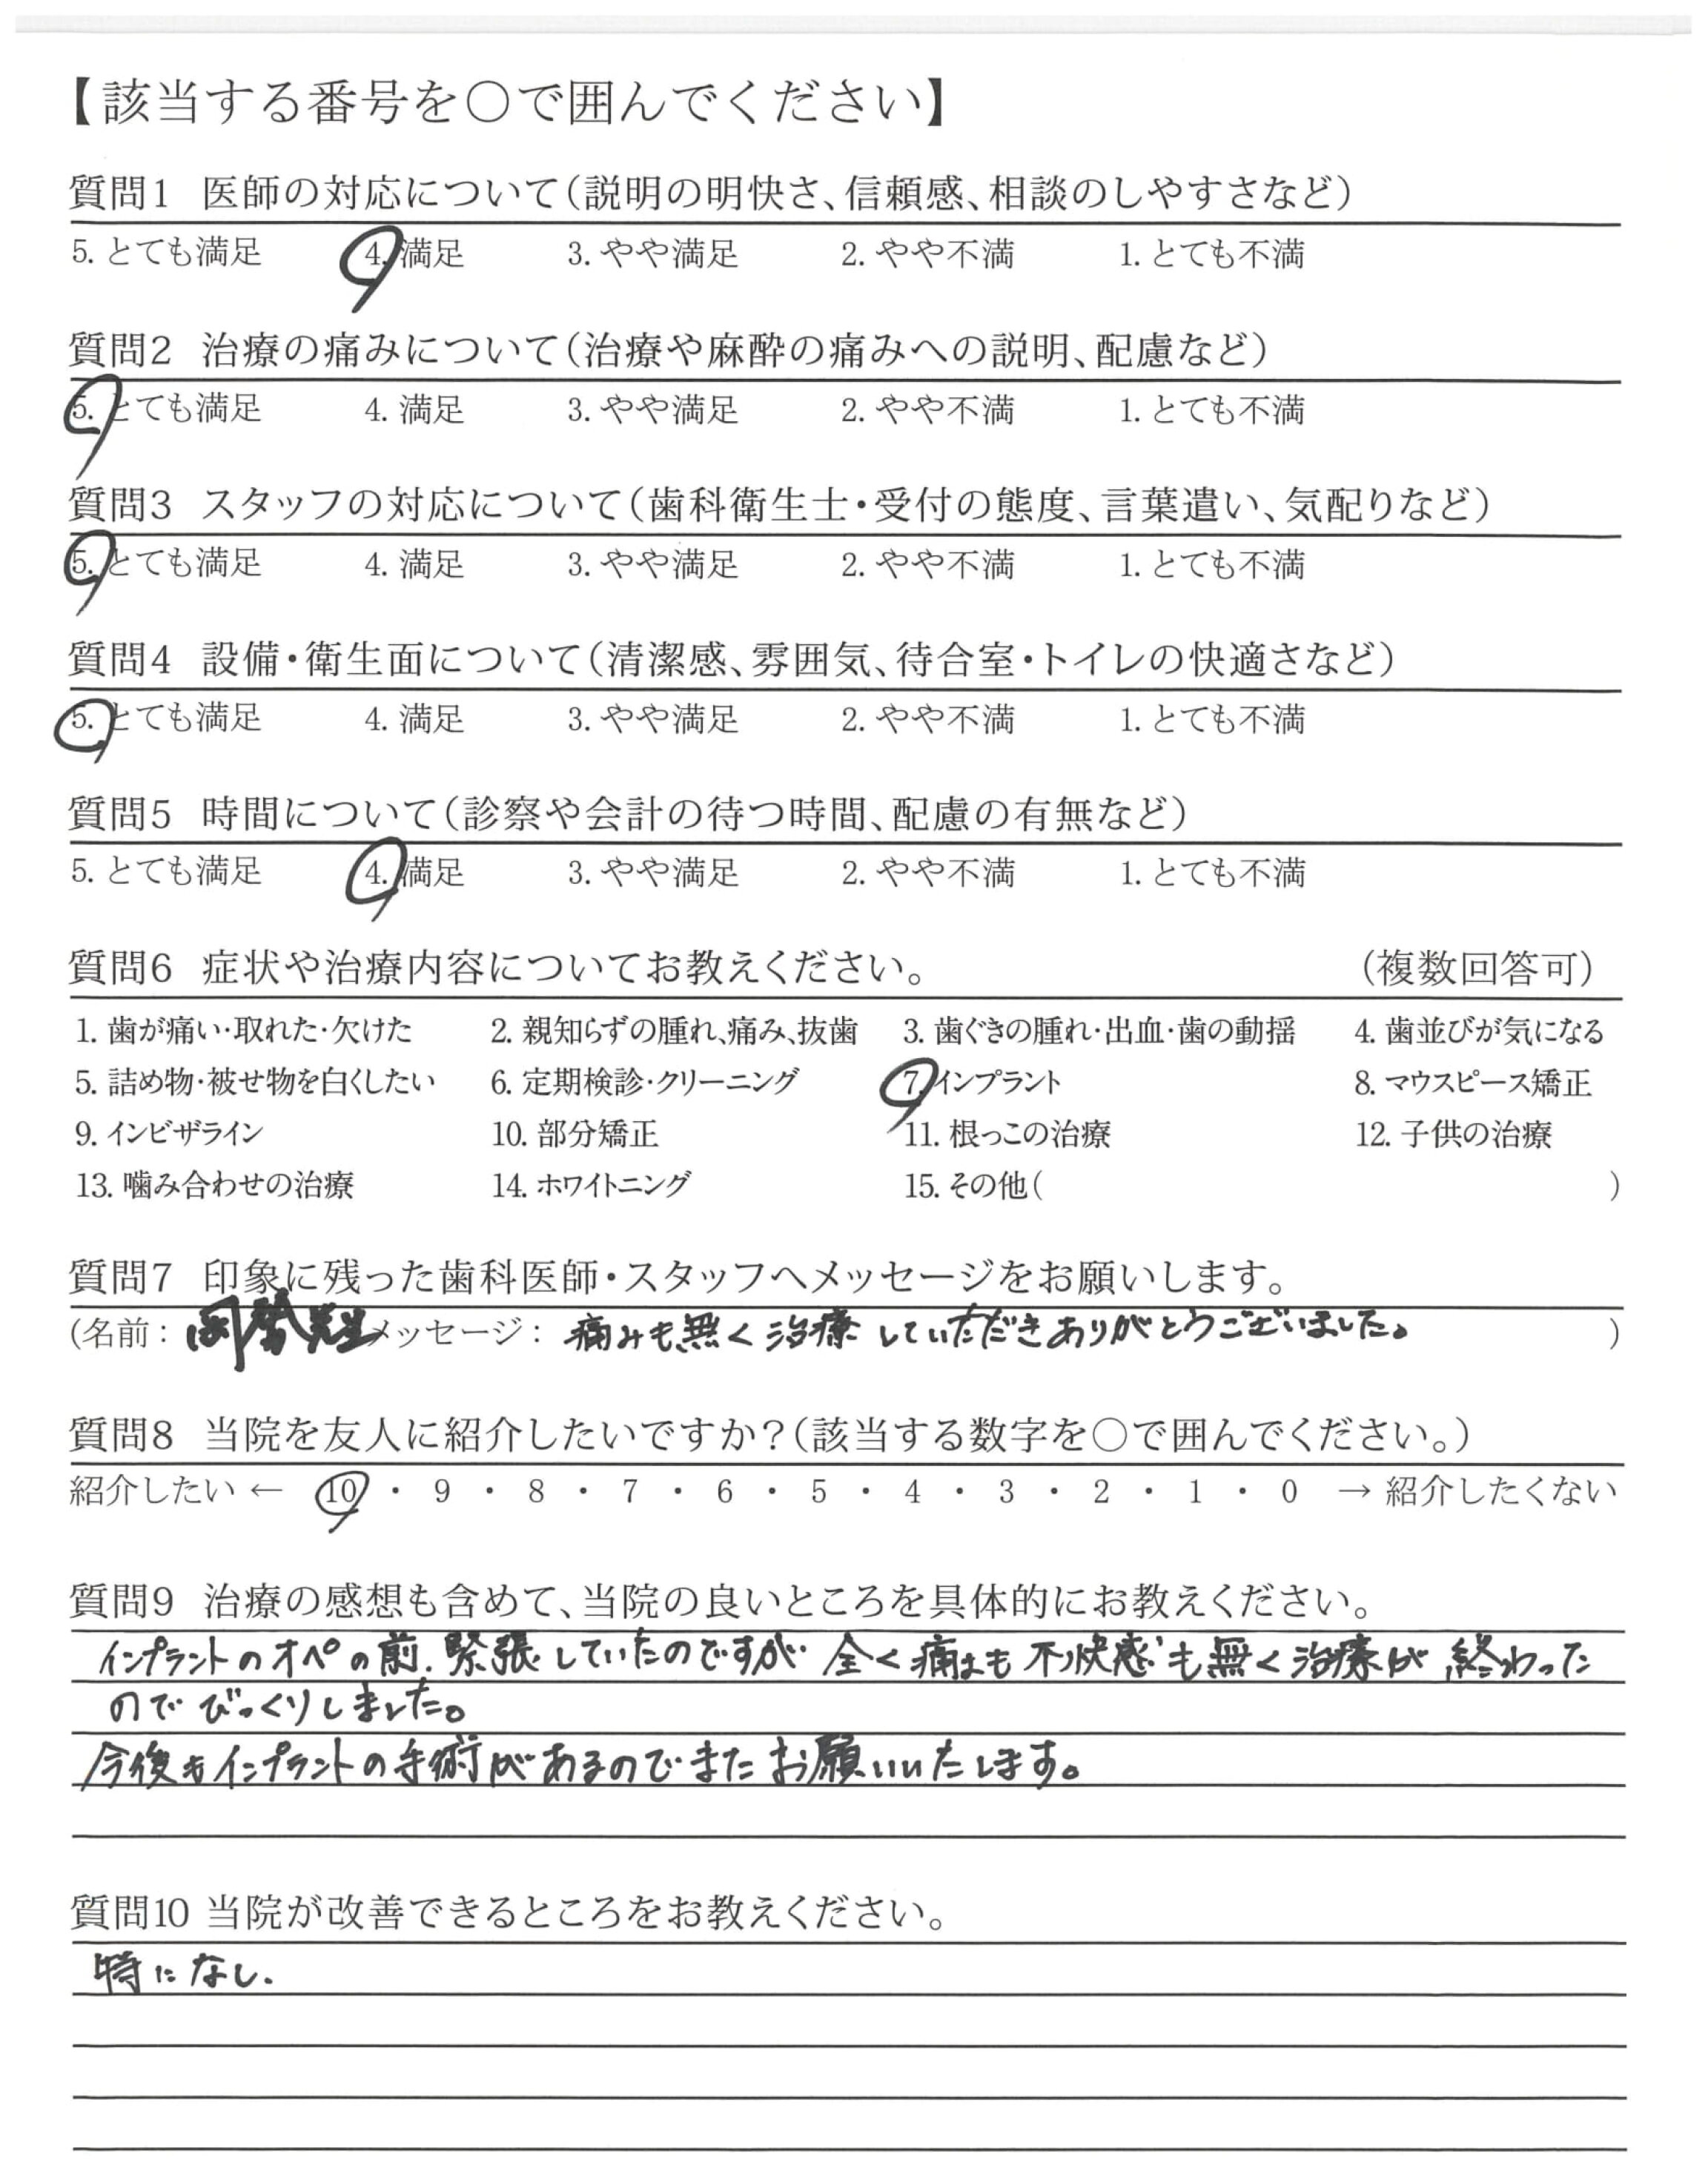 【該当する番号を〇で囲んでください】
質問1 医師の対応について(説明の明快さ、信頼感、相談のしやすさなど)
5. とても満足 4. 満足 3. やや満足 2. やや不満 1. とても不満
質問2 治療の痛みについて(治療や麻酔の痛みへの説明、配慮など)
5. とても満足 4. 満足 3. やや満足 2. やや不満 1. とても不満
質問3 スタッフの対応について(歯科衛生士・受付の態度、言葉遣い、気配りなど)
5. とても満足 4. 満足 3. やや満足 2. やや不満 1. とても不満
質問4 設備・衛生面について(清潔感、雰囲気、待合室・トイレの快適さなど)
5. とても満足 4. 満足 3. やや満足 2. やや不満 1. とても不満
質問5 時間について(診察や会計の待つ時間、配慮の有無など)
5. とても満足 4. 満足 3. やや満足 2. やや不満 1. とても不満
質問6 症状や治療内容についてお教えください。 (複数回答可)
1. 歯が痛い・取れた・欠けた 2. 親知らずの腫れ、痛み、抜歯 3. 歯ぐきの腫れ・出血・歯の動揺 4. 歯並びが気になる
5. 詰め物・被せ物を白くしたい 6. 定期検診・クリーニング 7. インプラント 8. マウスピース矯正
9. インビザライン 10. 部分矯正 11. 根っこの治療 12. 子供の治療
13. 噛み合わせの治療 14. ホワイトニング 15. その他( )
質問7 印象に残った歯科医師・スタッフへメッセージをお願いします。
(名前: 先生 メッセージ: 痛みも無く治療していただきありがとうございました。 )
質問8 当院を友人に紹介したいですか?(該当する数字を〇で囲んでください。)
紹介したい ← 10 ・ 9 ・ 8 ・ 7 ・ 6 ・ 5 ・ 4 ・ 3 ・ 2 ・ 1 ・ 0 → 紹介したくない
質問9 治療の感想も含めて、当院の良いところを具体的にお教えください。
インプラントのオペの前、緊張していたのですが 全く痛みも不快感も無く治療が終わった
のでびっくりしました。
今後もインプラントの手術があるのでまたお願いいたします。
質問10 当院が改善できるところをお教えください。
特になし.